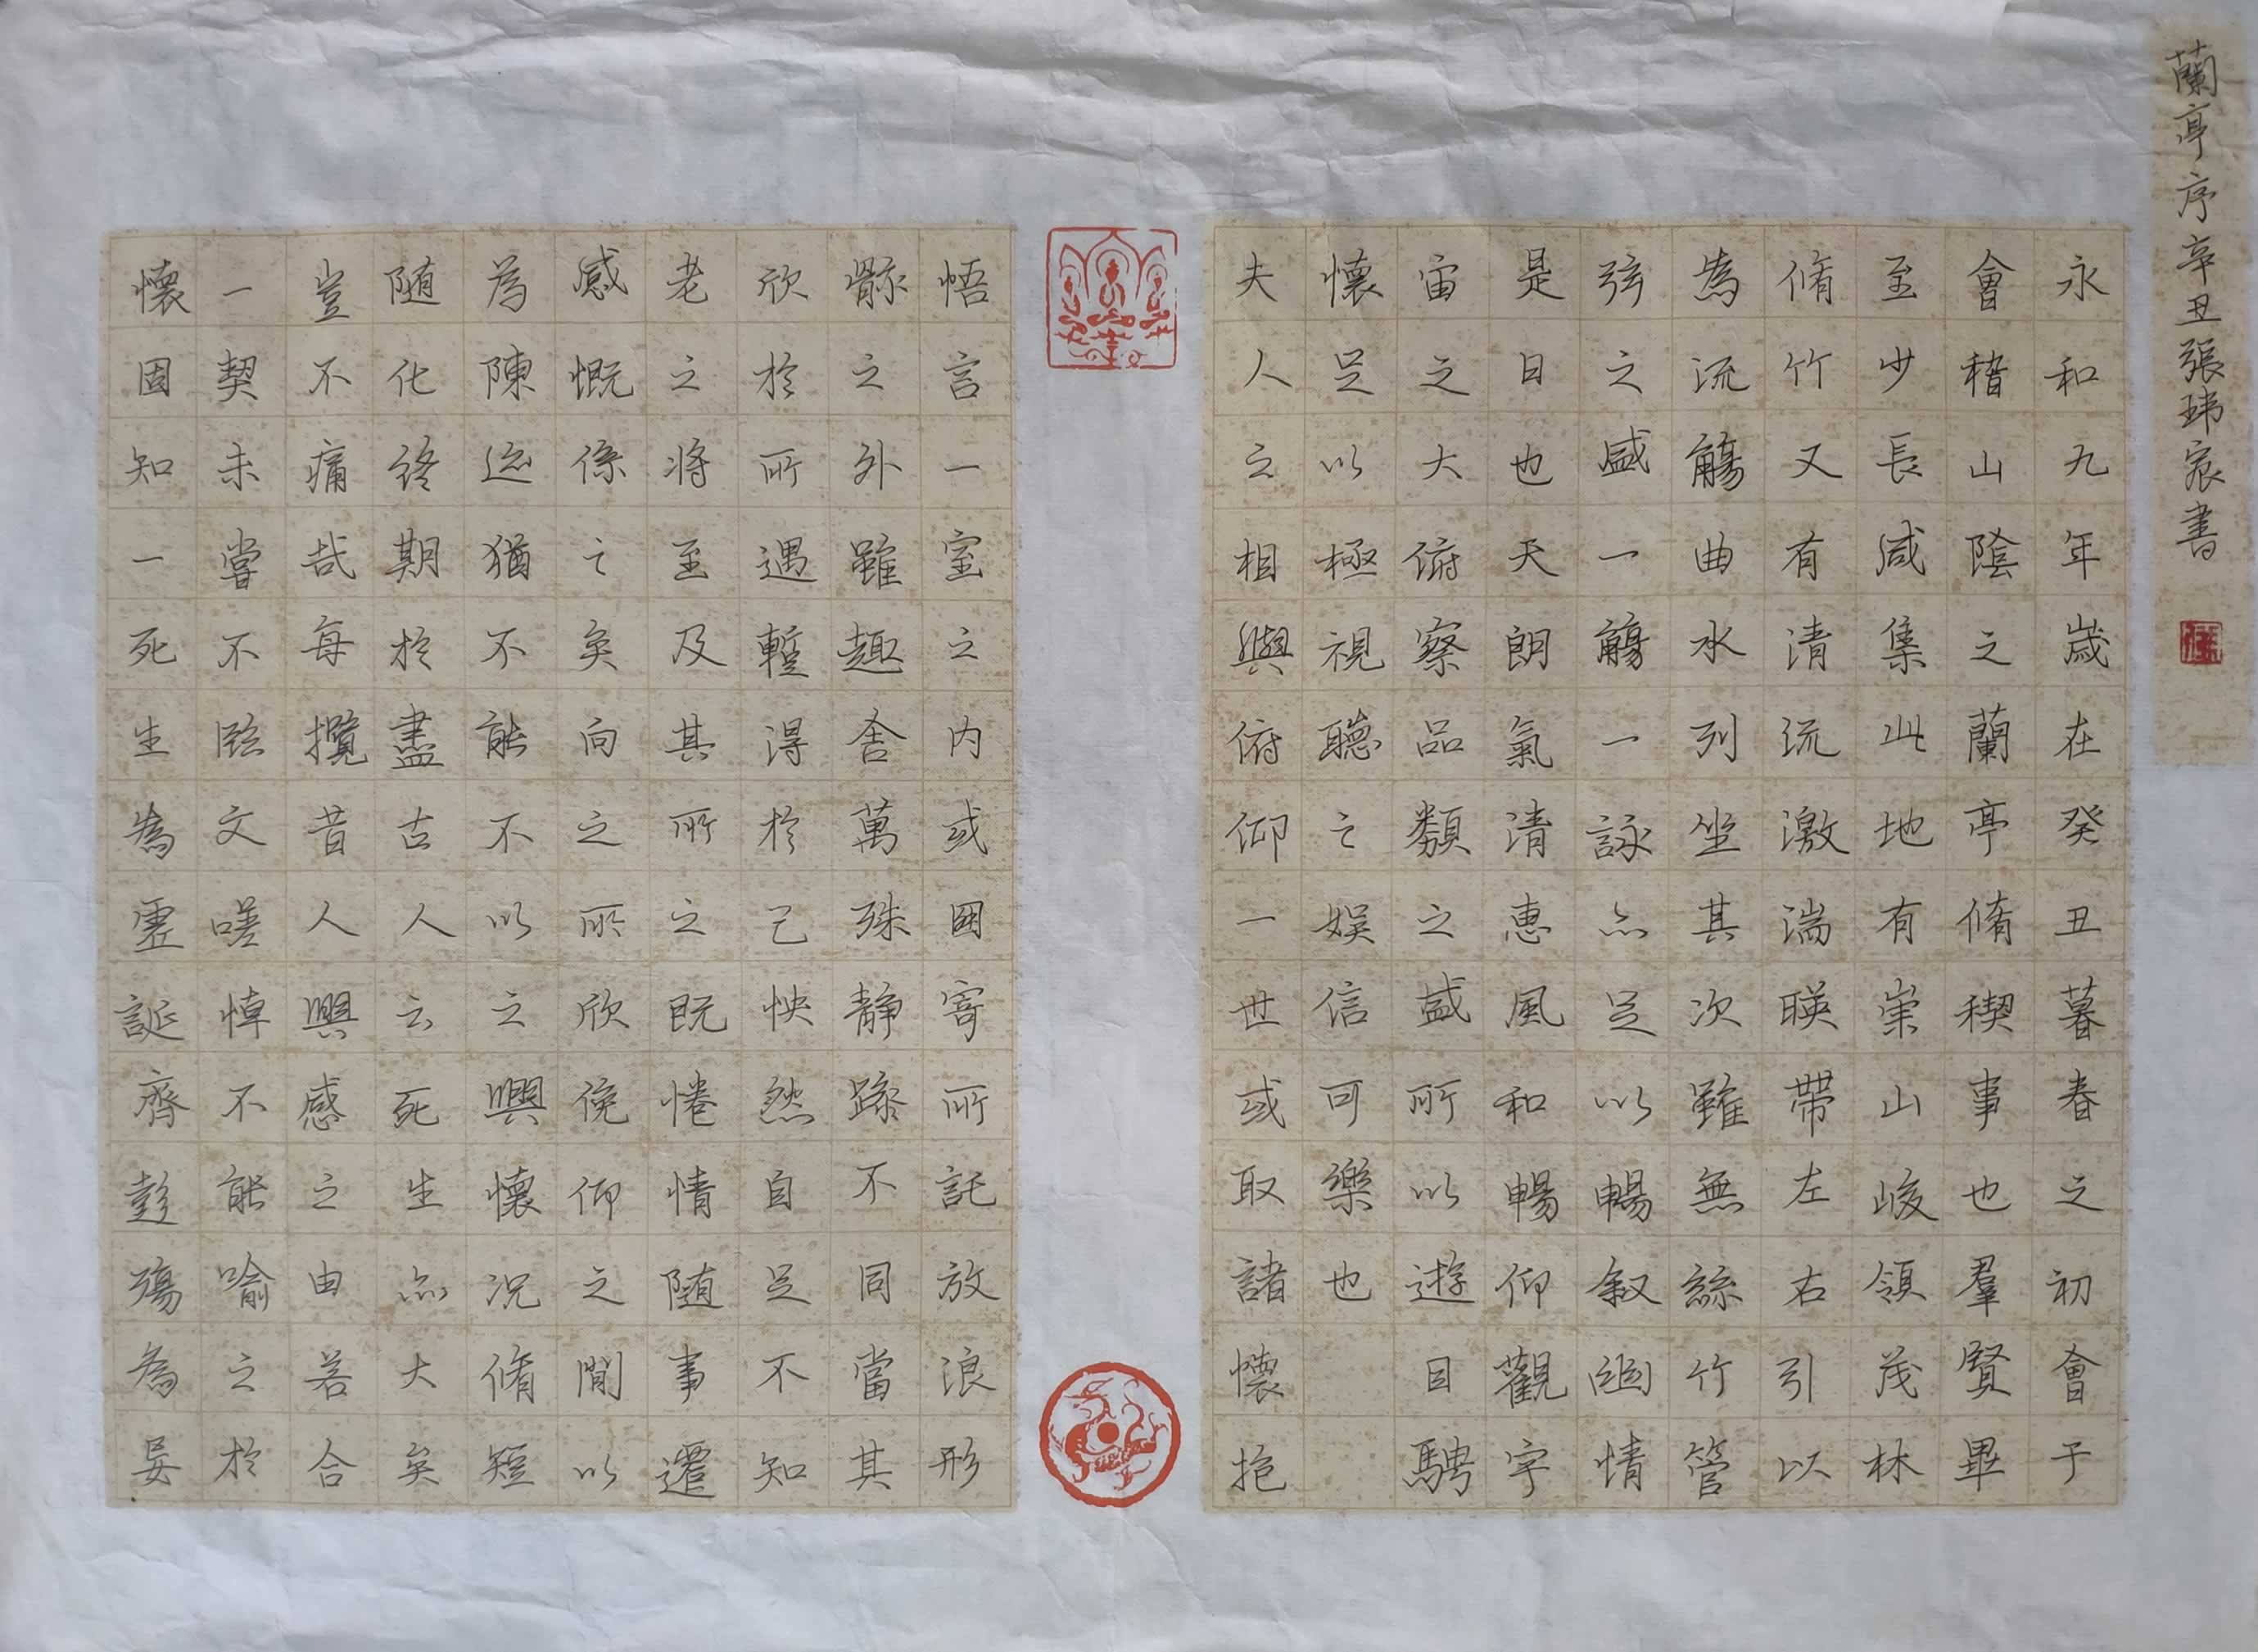 蘭亭序辛丑張瑋宸書
永和九年歲在癸丑暮春之初會于
會稽山陰之蘭亭脩稧事也羣賢畢
至少長咸集此地有崇山峻領茂林
脩竹又有清流激湍暎帶左右引以
為流觴曲水列坐其次雖無絲竹管
弦之盛一觴一詠亦足以暢敘幽情
是日也天朗氣清惠風和暢仰觀宇
宙之大俯察品類之盛所以遊目騁
懷足以極視聽之娛信可樂也
夫人之相與俯仰一世或取諸懷抱
悟言一室之內或因寄所託放浪形
骸之外雖趣舍萬殊靜躁不同當其
欣於所遇蹔得於己怏然自足不知
老之將至及其所之既惓情隨事遷
感慨係之矣向之所欣俛仰之閒以
為陳迹猶不能不以之興懷況脩短
隨化終期於盡古人云死生亦大矣
豈不痛哉每攬昔人興感之由若合
一契未嘗不臨文嗟悼不能喻之於
懷固知一死生為虛誕齊彭殤為妄